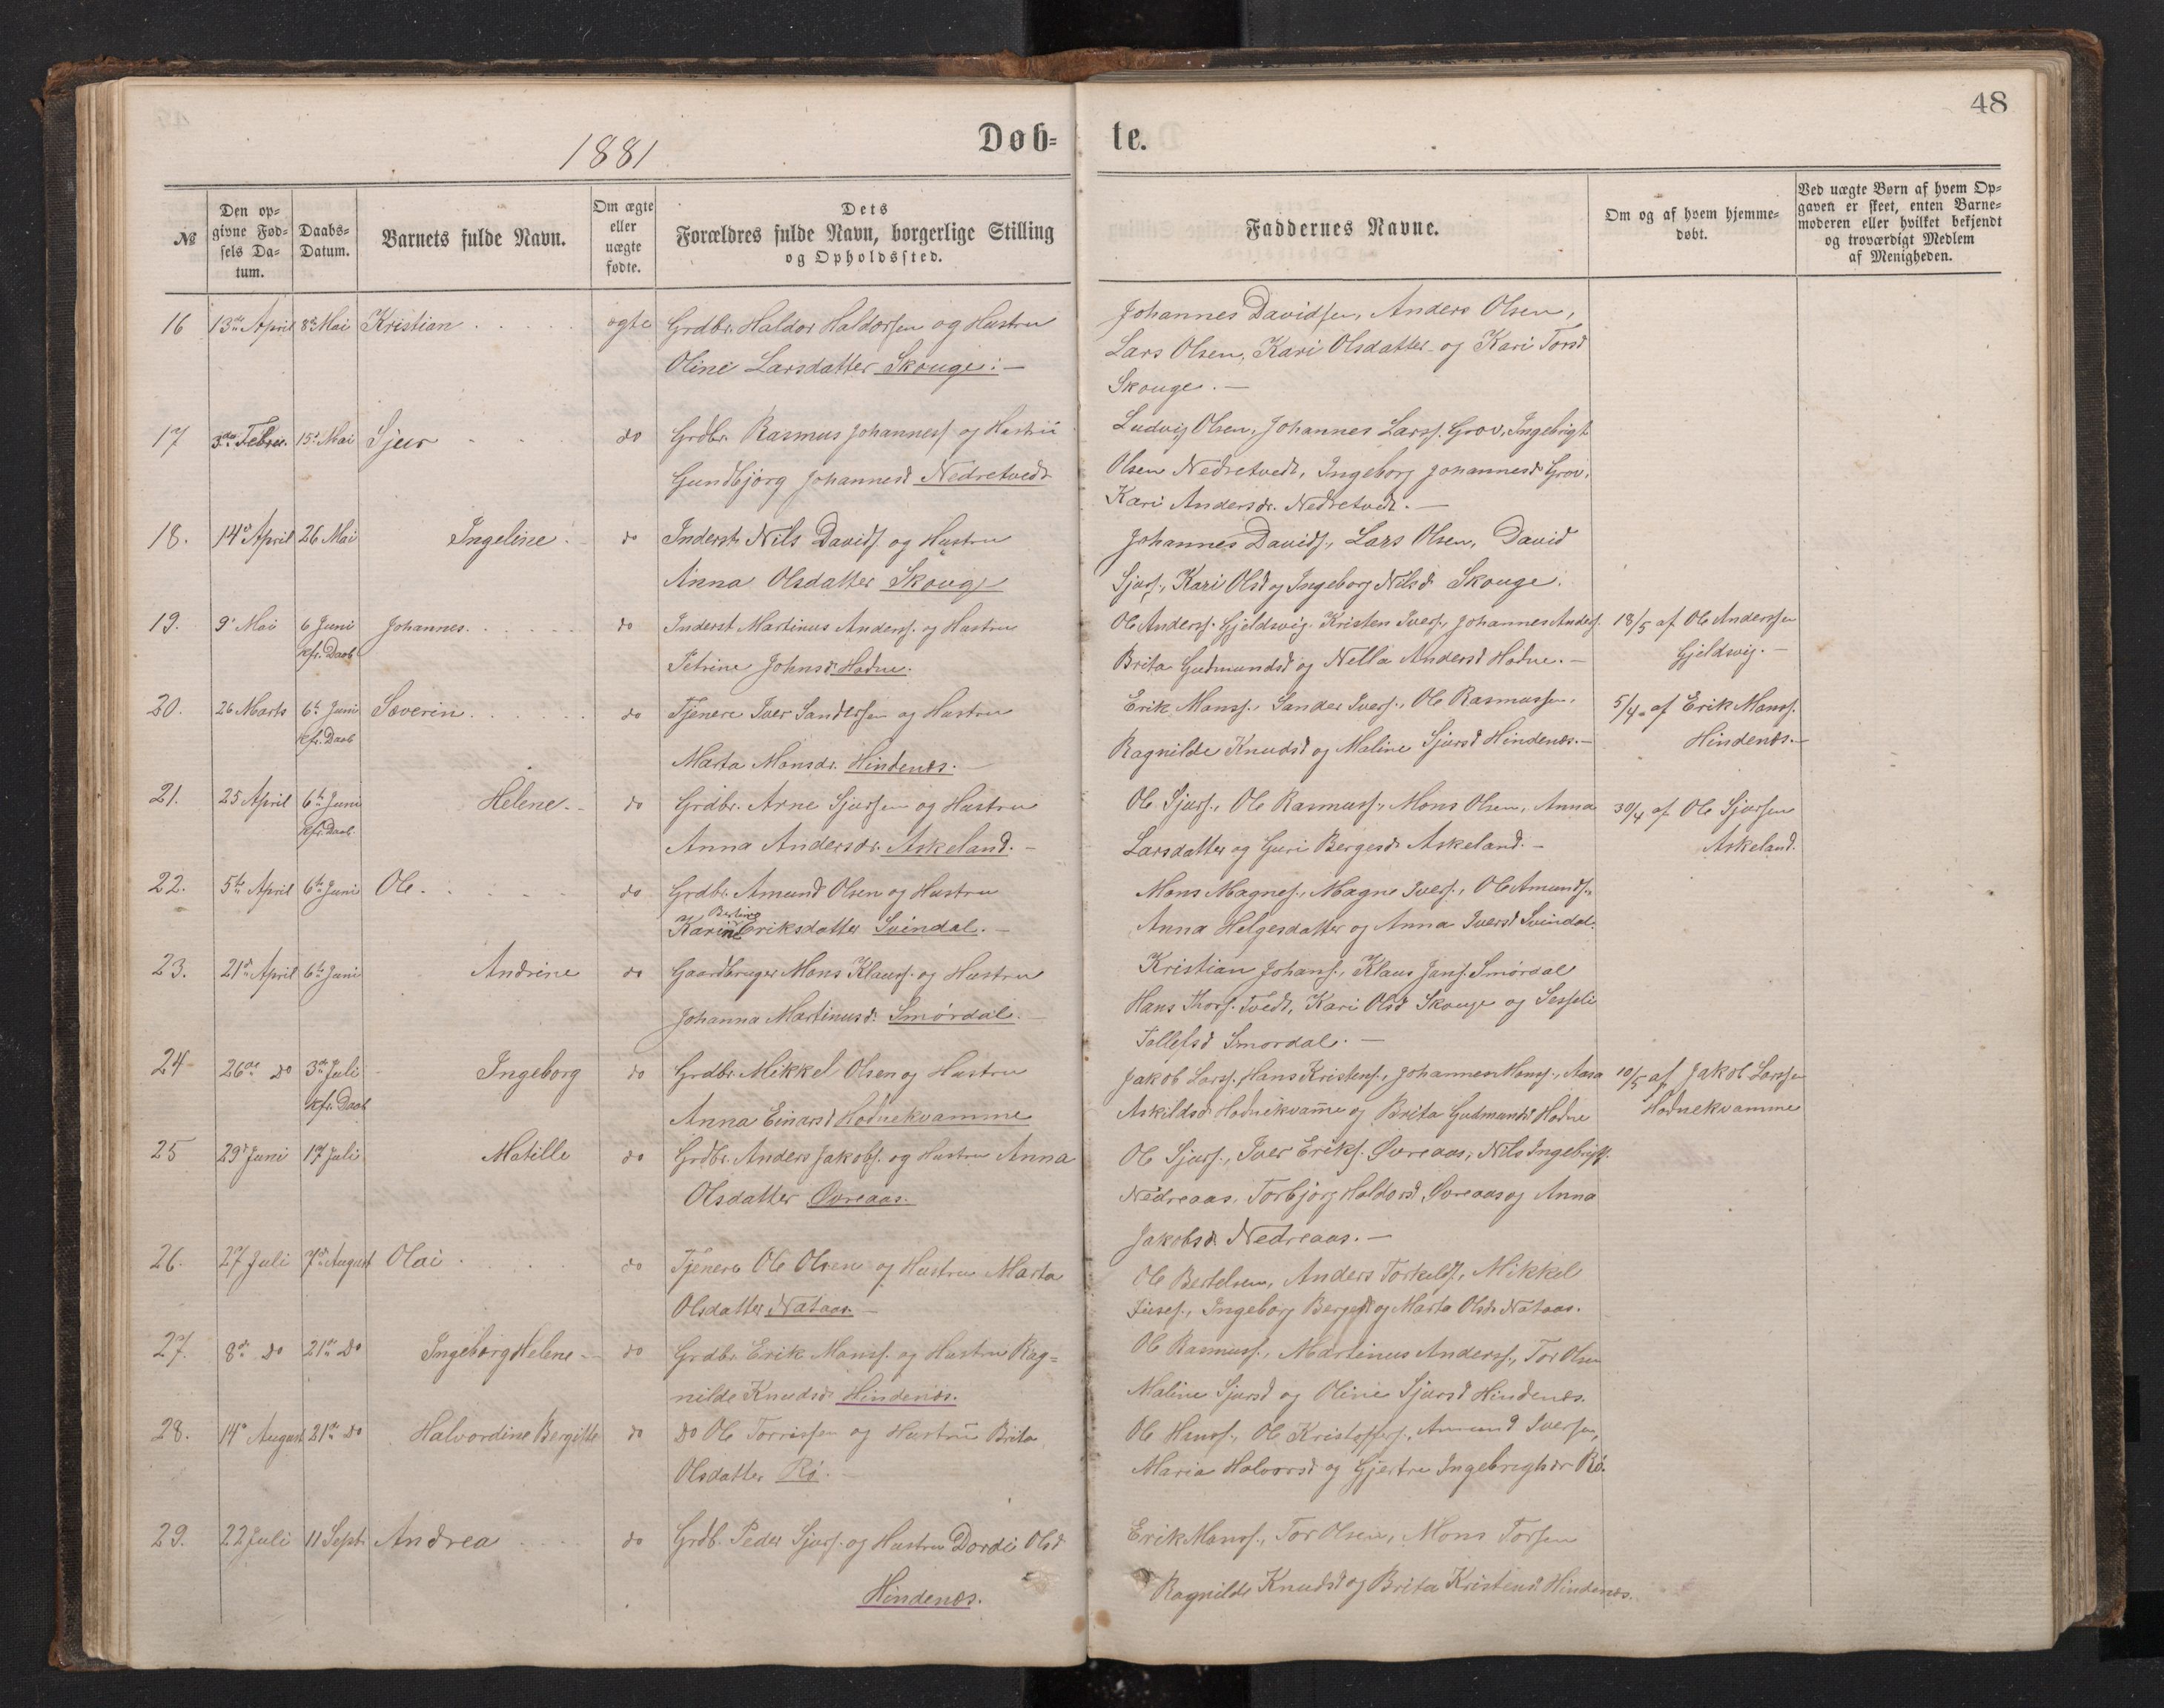 48
1881
Døb- te.
№
Den opgivne Fødsels Datum.
Daabs-Datum.
Barnets fulde Navn.
Om ægte eller uægte fødte.
Dets Forældres fulde Navn, borgerlige Stilling og Opholdssted.
Faddernes Navne.
Om og af hvem hjemmedøbt.
Ved uægte Børn af hvem Opgaven er skeet, enten Barnemoderen eller hvilket bekjendt og troværdigt Medlem af Menigheden.
16 13de April 8de Mai Kristian ægte Grdbr. Haldor Haldorsen og Hustru
Oline Larsdatter Skouge.
Johannes Davidsen, Anders Olsen,
Lars Olsen, Kari Olsdatter og Kari Torsd
Skouge.
17 3de Febru. 15d Mai Sjur do Grdbr. Rasmus Johanness. og Hustru
Gundbjørg Johannesd Nedretvedt
Ludvig Olsen, Johannes Larss. Grov, Ingebrigt
Olsen Nedretvedt, Ingeborg Johannesd Grov,
Kari Andersdr. Nedretvedt.
18. 14d April 26 Mai Ingeline do Inderst Nils Davids. og Hustru
Anna Olsdatter Skouge
Johannes Davids., Lars Olsen, David
Sjurs., Kari Olsd og Ingeborg Nilsd Skouge.
19. 9d Mai 6 Juni Johannes. do Inderst Martinus Anderss. og Hustru
kfr. Daab
Petrine Johnsd. Hodne.
Ole Anderss. Gjeldsvig, Kristen Ivers., Johannes Anderss.
Brita Gudmundsd og Nella Andersd Hodne.
18/5 af Ole Anderssen
Gjeldsvig.
20. 26 Marts 6te Juni Severin do Tjener Iver Sandersen og Hustru
kfr. Daab
Marta Monsdr. Hindenes.
Erik Monss., Sander Ivers., Ole Rasmussen.
Ragnilde Knudsd og Maline Sjursd Hindenes.
5/4 af Erik Monss.
Hindenes.
21. 25 April 6te Juni Helene do Grdbr. Arne Sjursen og Hustru
kfr. Daab
Anna Andersdr. Askeland.
Ole Sjurs., Ole Rasmuss., Mons Olsen, Anna
Larsdatter og Guri Bergesd. Askeland.
30/4 af Ole Sjursen
Askeland.
22. 5te April 6te Juni Ole do Grdbr. Amund Olsen og Hustru
Berline
Karine Eriksdatter Svindal.
Mons Magnes., Magne Ivers., Ole Amunds.,
Anna Helgesdatter og Anna Iversd Svindal.
23. 21de April 6te Juni Andrine do Gaardbruger Mons Klauss. og Hustru
Johanna Martinusd. Smørdal.
Kristian Johans., Klaus Jans. Smørdal
Hans Thors. Tvedt, Kari Olsd Skouge og Sesseli
Tollefsd Smørdal.
24 26de do 3de Juli Ingeborg do Grdbr. Mikkel Olsen og Hustru
kfr. Daab
Anna Einarsd Hodnekvamme
Jakob Larss., Hans Kristens., Johannes Monss., Aasa
Askildsd Hodnekvamme og Brita Gudmundsd Hodne
10/5 af Jakob Larssen
Hodnekvamme
25 29d Juni 17 Juli Matille do Grdbr. Anders Jakobs. og Hustru Anna
Olsdatter Øvreaas.
Ole Sjurs., Iver Eriks. Øvreaas, Nils Ingebrigts.
Nedreaas, Torbjørg Haldorsd Øvreaas og Anna
Jakobsd. Nedreaas.
26. 27 Juli 7de August Olai do Tjener Ole Olsen og Hustru Marta
Olsdatter Nataas.
Ole Bertelsen, Anders Torkels., Mikkel
Ingeborg og Marta Olsd. Nataas.
27. 8de do 21de do Ingeborg Helene do Grdbr. Erik Monss. og Hustru Rag-
nilde Knudsd. Hindenes.
Ole Rasmuss., Martinus Anderss., Tor Olsen
Maline Sjursd og Oline Sjursd Hindenes.
28. 14d August 21de do Halvordine Bergitte do do Ole Torrissen og Hustru Brita
Olsdatter Rø.
Ole Hanss., Ole Kristoffers., Amund Iversen,
Maria Halvorsd og Gjertru Ingebrigtsdr Rø.
29. 22 Juli 11 Sept. Andrea do Grdb. Peder Sjurs. og Hustru Dordi Olsd
Hindenes.
Erik Monss., Tor Olsen, Mons Torsen
Ragnilde Knudsd og Brita Kristensd Hindenes.